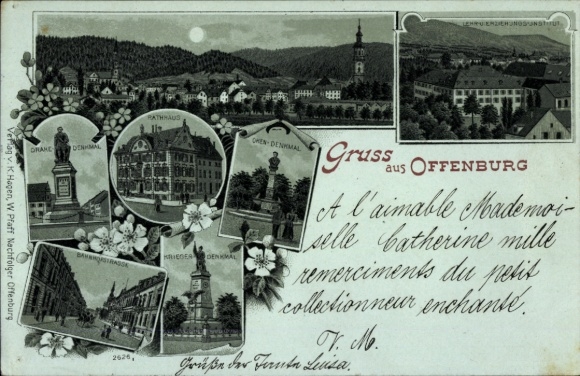 LEHR-U. ERZIEHUNGSINSTITUT.
RATHHAUS
DRAKE-DENKMAL
OKEN-DENKMAL
Gruss aus OFFENBURG
A l'aimable Mademoi-
selle Catherine mille
remerciments du petit
collectionneur enchanté.
V. M.
BAHNHOFSTRASSE
KRIEGER-DENKMAL
2626
Grüße der Tante Luisa.
Verlag v. K. Hagen, W. Pfaff Nachfolger, Offenburg